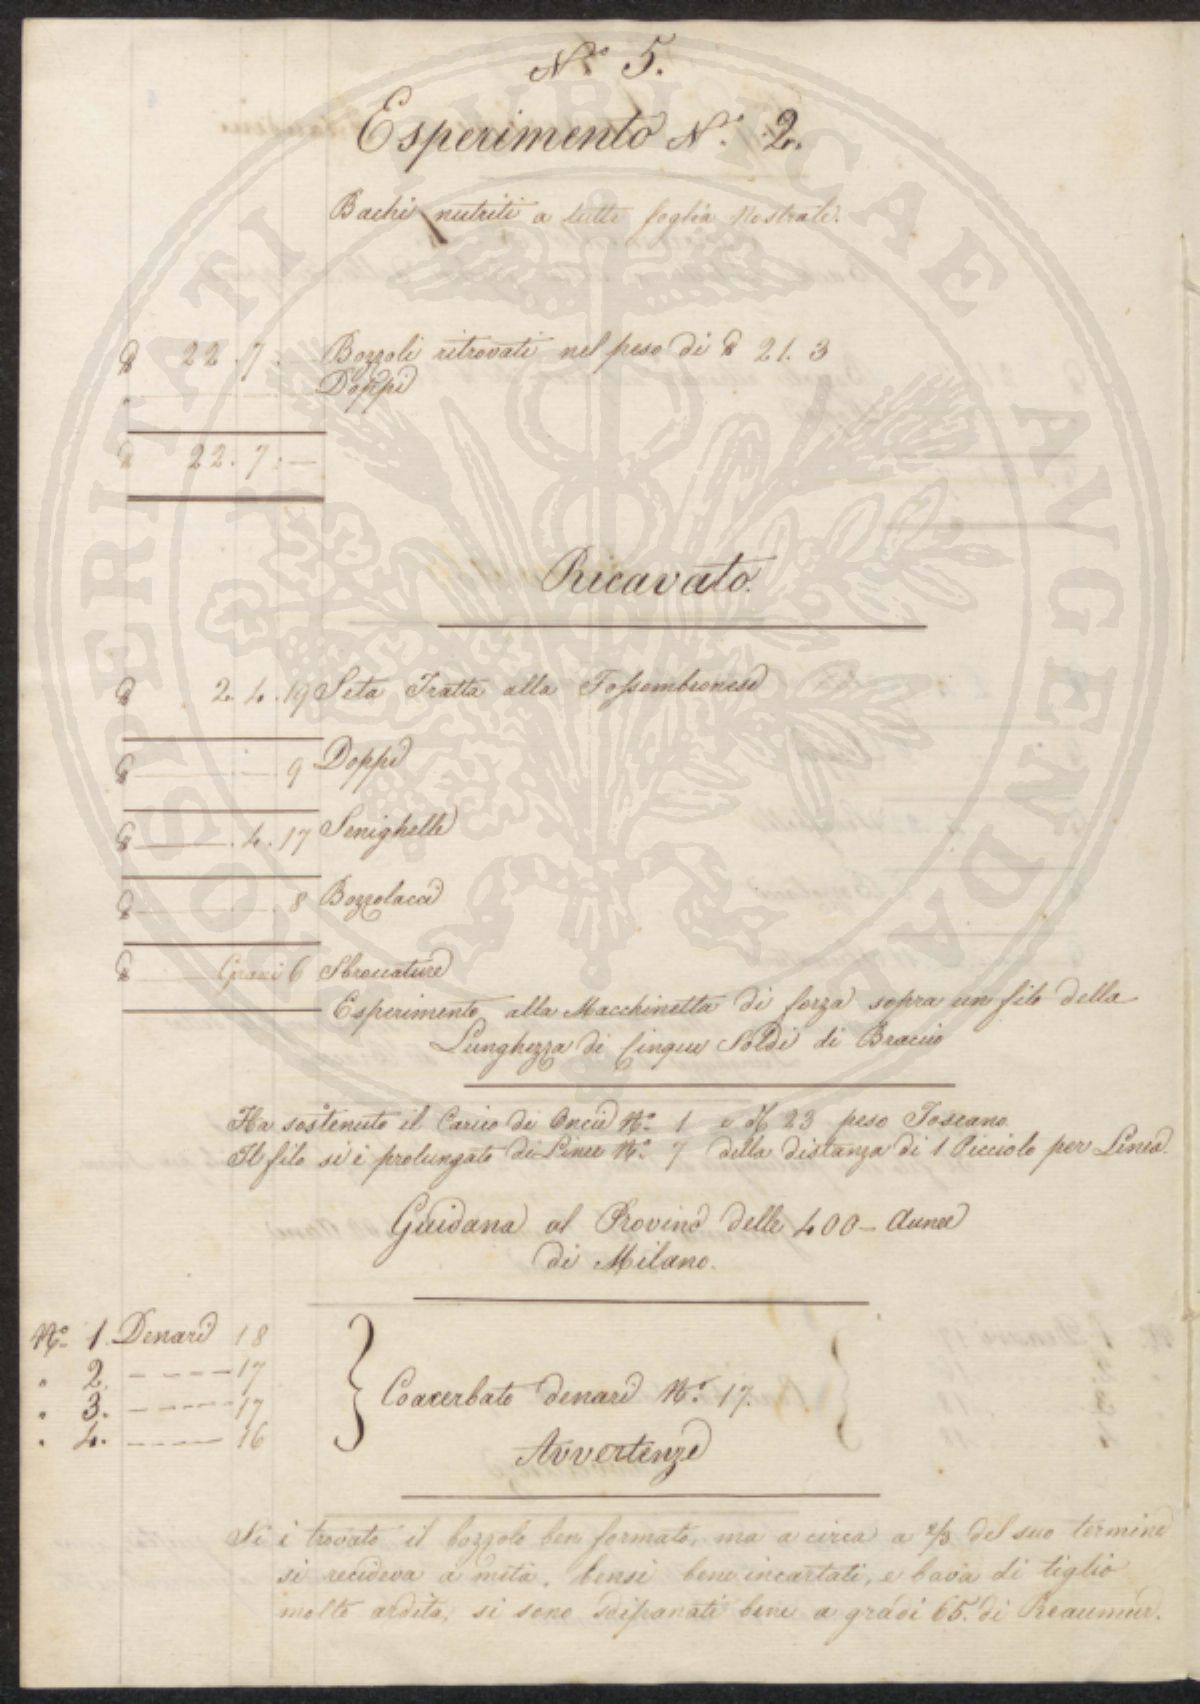 N.º 5.
Esperimento N.º 2.
Bachi nutriti a tutta foglia Nostrale.
22. 7. — Bozzoli ritrovati nel peso di 21. 3
" Doppi
22. 7. —
Ricavato.
2. 4. 19 Seta Tratta alla Fossombronese
9 Doppi
4. 17 Senighelle
8 Bozzolacci
Grani 6 Sbroccature
Esperimento alla Macchinetta di forza sopra un filo della
Lunghezza di Cinque Soldi di Braccio
Ha sostenuto il Carico di Oncie N.º 1 e 23 peso Toscano.
Il filo si è prolungato di Linee N.º 7 della distanza di 1 Picciolo per Linea.
Guidana al Provino delle 400 - Aunee
di Milano.
N.º 1. Denari 18
" 2. ---- 17
" 3. ---- 17
" 4. ---- 16
Coacerbato denari N.º 17.
Avvertenze
Si è trovato il bozzolo ben formato, ma a circa a 2/3 del suo termine
si recideva a metà, bensì bene incartati, e bava di tiglio
molto ardita, si sono sdipanati bene a gradi 65. di Reaumur.
PROSPERITATI PUBLICAE AVGENDAE